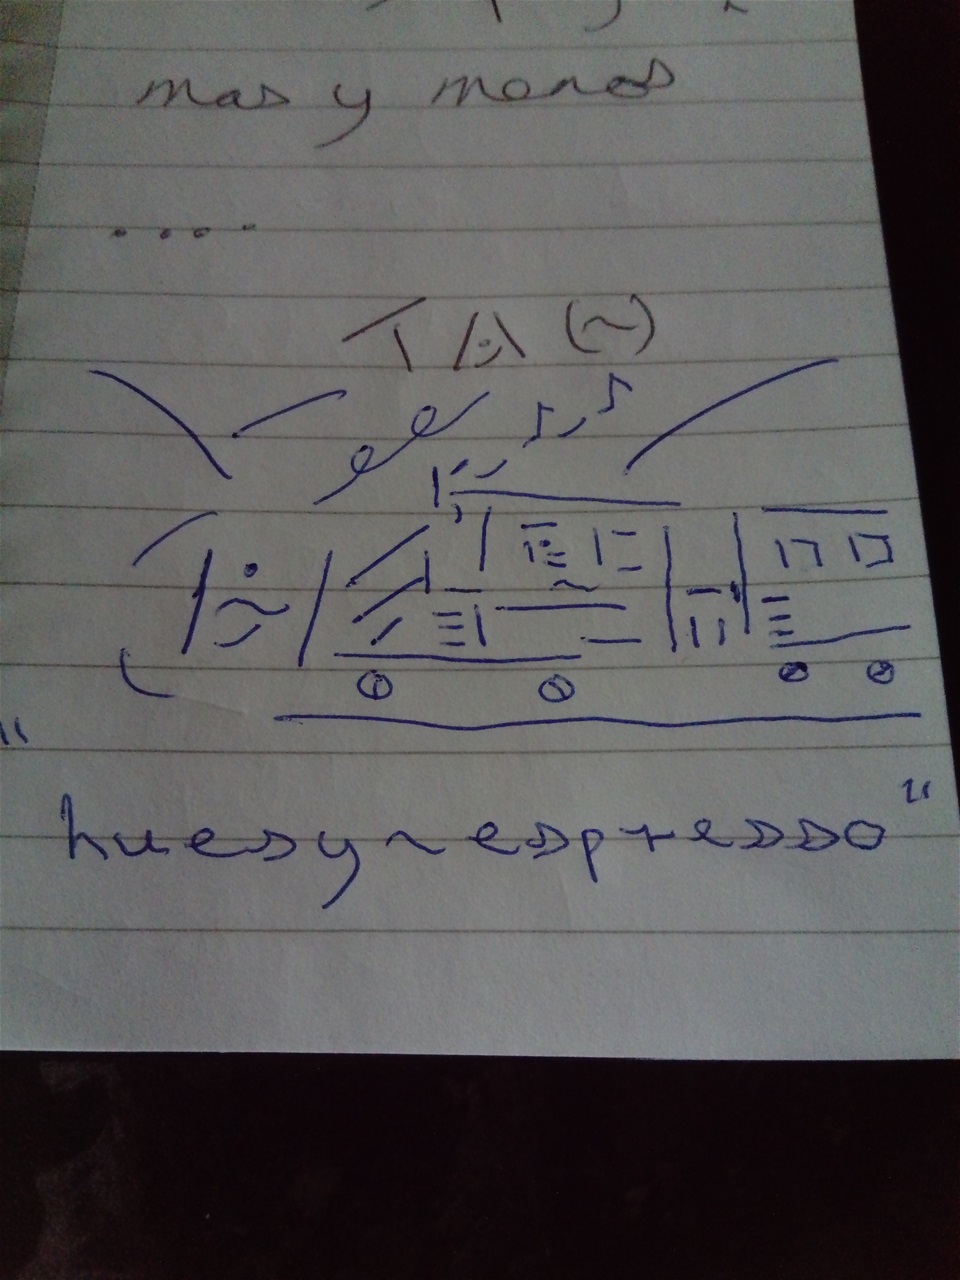 mas y menos
....
TA (~)
"huesy~espresso"